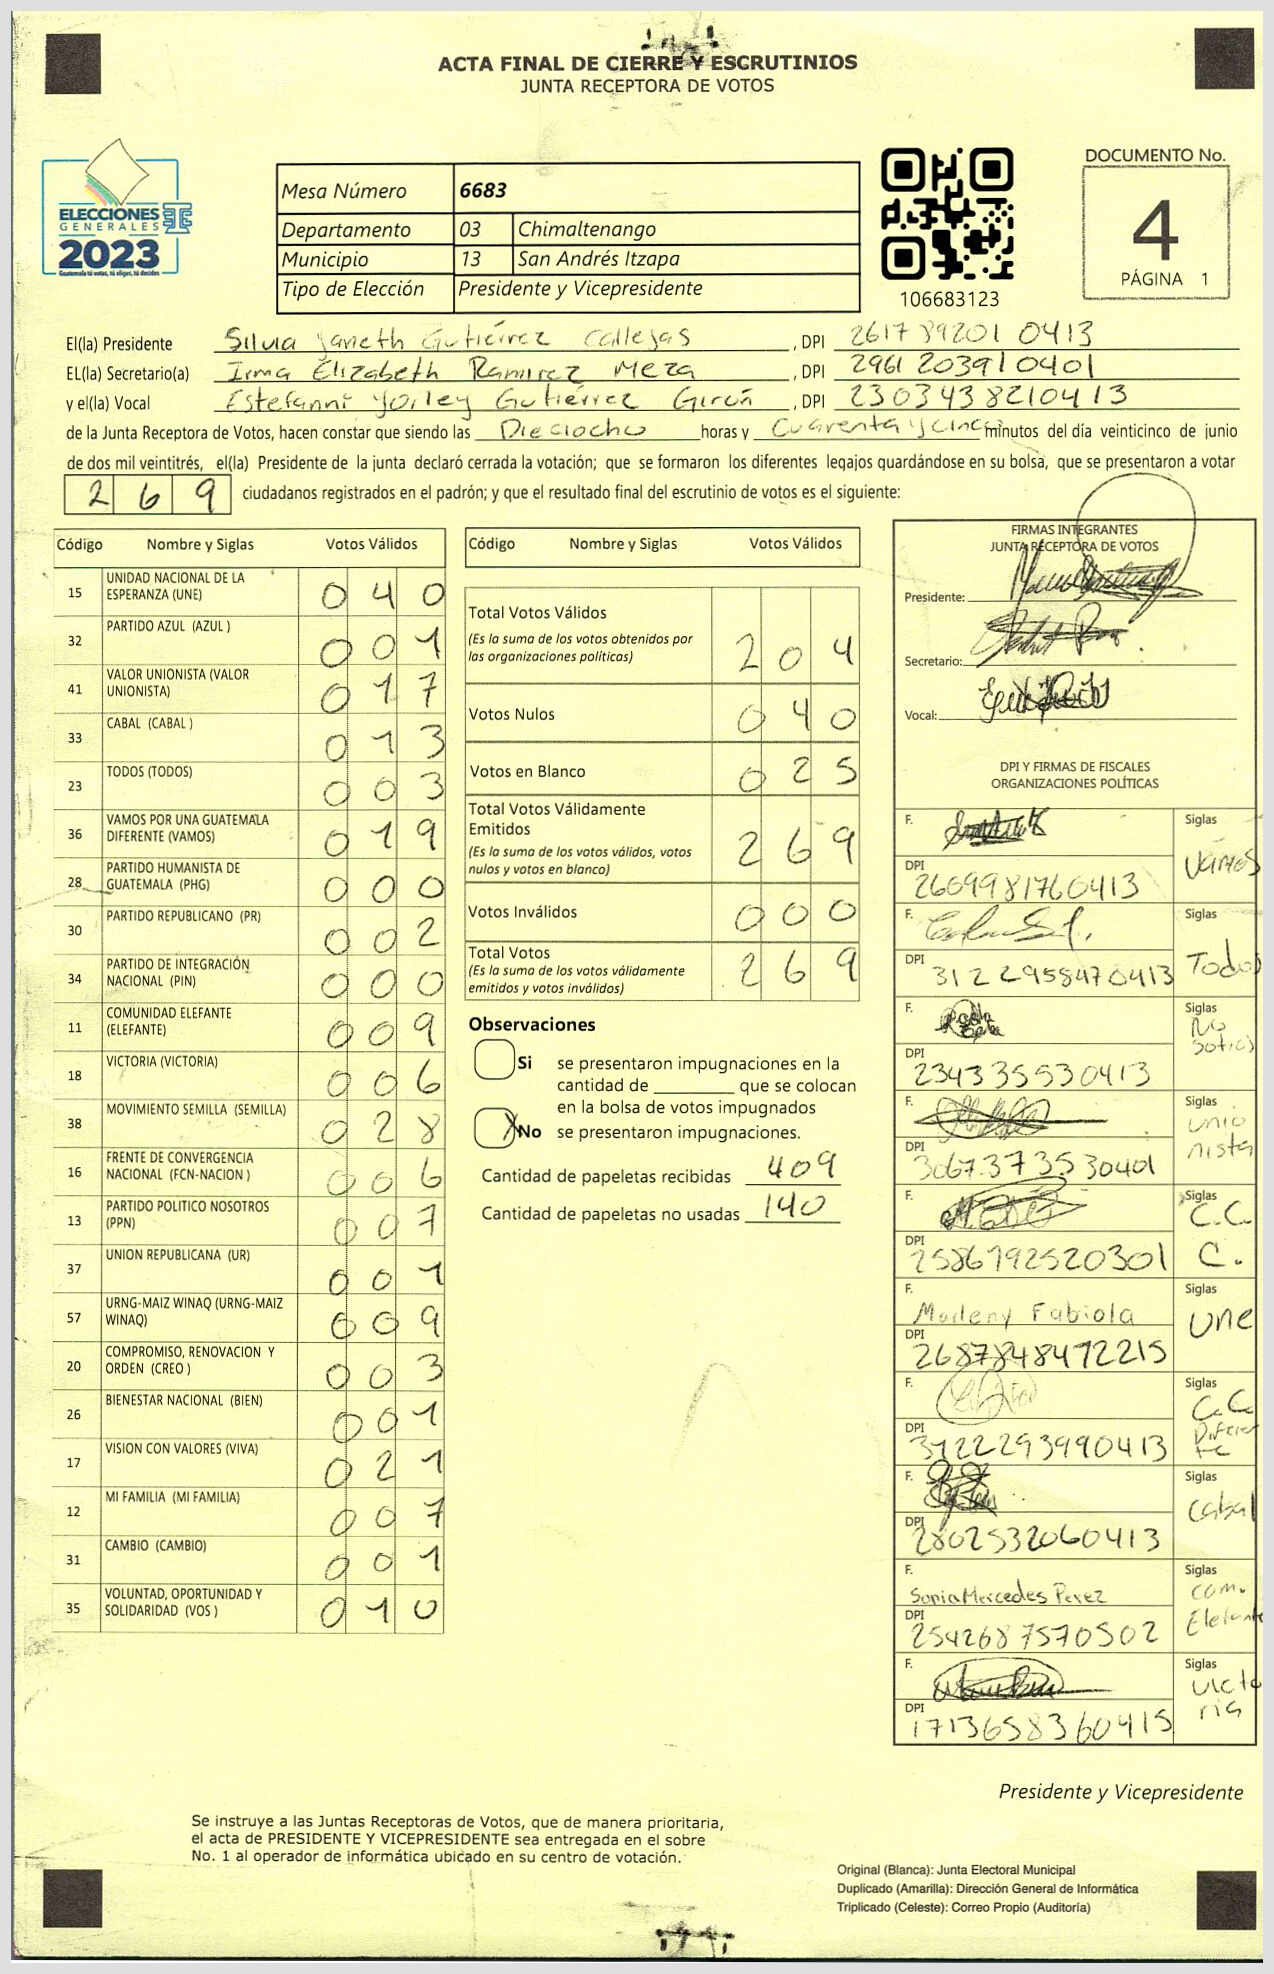 ACTA FINAL DE CIERRE Y ESCRUTINIOS
JUNTA RECEPTORA DE VOTOS
ELECCIONES
GENERALES
2023
Guatemala tú votas, tú eliges, tú decides
Mesa Número 6683
Departamento 03 Chimaltenango
Municipio 13 San Andrés Itzapa
Tipo de Elección Presidente y Vicepresidente
106683123
DOCUMENTO No.
4
PÁGINA 1
El(la) Presidente Silvia Janeth Gutiérrez Callejas , DPI 2617 89201 0413
EL(la) Secretario(a) Irma Elizabeth Ramirez Meza , DPI 2961 20391 0401
y el(la) Vocal Estefanni Yorley Gutierrez Girón , DPI 2303438210413
de la Junta Receptora de Votos, hacen constar que siendo las Dieciocho horas y Cuarenta y cinco minutos del día veinticinco de junio
de dos mil veintitrés, el(la) Presidente de la junta declaró cerrada la votación; que se formaron los diferentes legajos guardándose en su bolsa, que se presentaron a votar
269 ciudadanos registrados en el padrón; y que el resultado final del escrutinio de votos es el siguiente:
Código Nombre y Siglas Votos Válidos
15 UNIDAD NACIONAL DE LA ESPERANZA (UNE) 040
32 PARTIDO AZUL (AZUL ) 001
41 VALOR UNIONISTA (VALOR UNIONISTA) 017
33 CABAL (CABAL ) 013
23 TODOS (TODOS) 003
36 VAMOS POR UNA GUATEMALA DIFERENTE (VAMOS) 019
28 PARTIDO HUMANISTA DE GUATEMALA (PHG) 000
30 PARTIDO REPUBLICANO (PR) 002
34 PARTIDO DE INTEGRACIÓN NACIONAL (PIN) 000
11 COMUNIDAD ELEFANTE (ELEFANTE) 009
18 VICTORIA (VICTORIA) 006
38 MOVIMIENTO SEMILLA (SEMILLA) 028
16 FRENTE DE CONVERGENCIA NACIONAL (FCN-NACION ) 006
13 PARTIDO POLITICO NOSOTROS (PPN) 007
37 UNION REPUBLICANA (UR) 001
57 URNG-MAIZ WINAQ (URNG-MAIZ WINAQ) 009
20 COMPROMISO, RENOVACION Y ORDEN (CREO ) 003
26 BIENESTAR NACIONAL (BIEN) 001
17 VISION CON VALORES (VIVA) 021
12 MI FAMILIA (MI FAMILIA) 007
31 CAMBIO (CAMBIO) 001
35 VOLUNTAD, OPORTUNIDAD Y SOLIDARIDAD (VOS ) 010
Código Nombre y Siglas Votos Válidos
Total Votos Válidos 204
(Es la suma de los votos obtenidos por
las organizaciones políticas)
Votos Nulos 040
Votos en Blanco 025
Total Votos Válidamente
Emitidos 269
(Es la suma de los votos válidos, votos
nulos y votos en blanco)
Votos Inválidos 000
Total Votos 269
(Es la suma de los votos válidamente
emitidos y votos inválidos)
Observaciones
Si se presentaron impugnaciones en la
cantidad de ________ que se colocan
en la bolsa de votos impugnados
X No se presentaron impugnaciones.
Cantidad de papeletas recibidas 409
Cantidad de papeletas no usadas 140
FIRMAS INTEGRANTES
JUNTA RECEPTORA DE VOTOS
Presidente:
Secretario:
Vocal:
DPI Y FIRMAS DE FISCALES
ORGANIZACIONES POLÍTICAS
F. Siglas Vamos
DPI 2609981760413
F. Siglas Todos
DPI 3122958470413
F. Siglas No sotros
DPI 2343355530413
F. Siglas unio nista
DPI 3067373530401
F. Siglas C.C. C.
DPI 2586792520301
F. Marleny Fabiola Siglas une
DPI 2687848472215
F. Siglas
DPI 3122293990413
F. Siglas Cabal
DPI 2802532060413
F. Sonia Mercedes Perez Siglas com. Elefante
DPI 2542687570502
F. Siglas victo ria
DPI 1713658360415
Presidente y Vicepresidente
Se instruye a las Juntas Receptoras de Votos, que de manera prioritaria,
el acta de PRESIDENTE Y VICEPRESIDENTE sea entregada en el sobre
No. 1 al operador de informática ubicado en su centro de votación.
Original (Blanca): Junta Electoral Municipal
Duplicado (Amarilla): Dirección General de Informática
Triplicado (Celeste): Correo Propio (Auditoría)